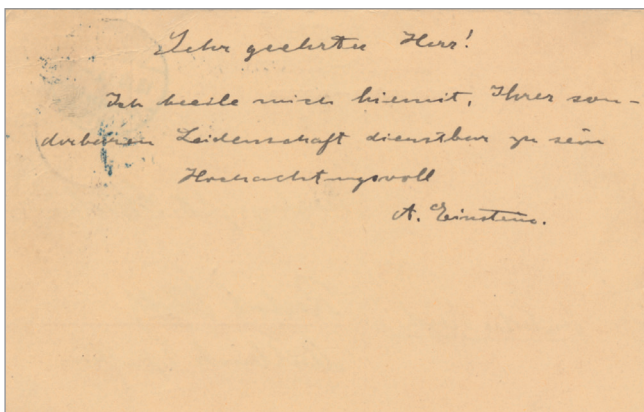 Sehr geehrter Herr!
Ich beeile mich hiemit, Ihrer son-
derbaren Leidenschaft dienstbar zu sein
Hochachtungsvoll
A. Einstein.